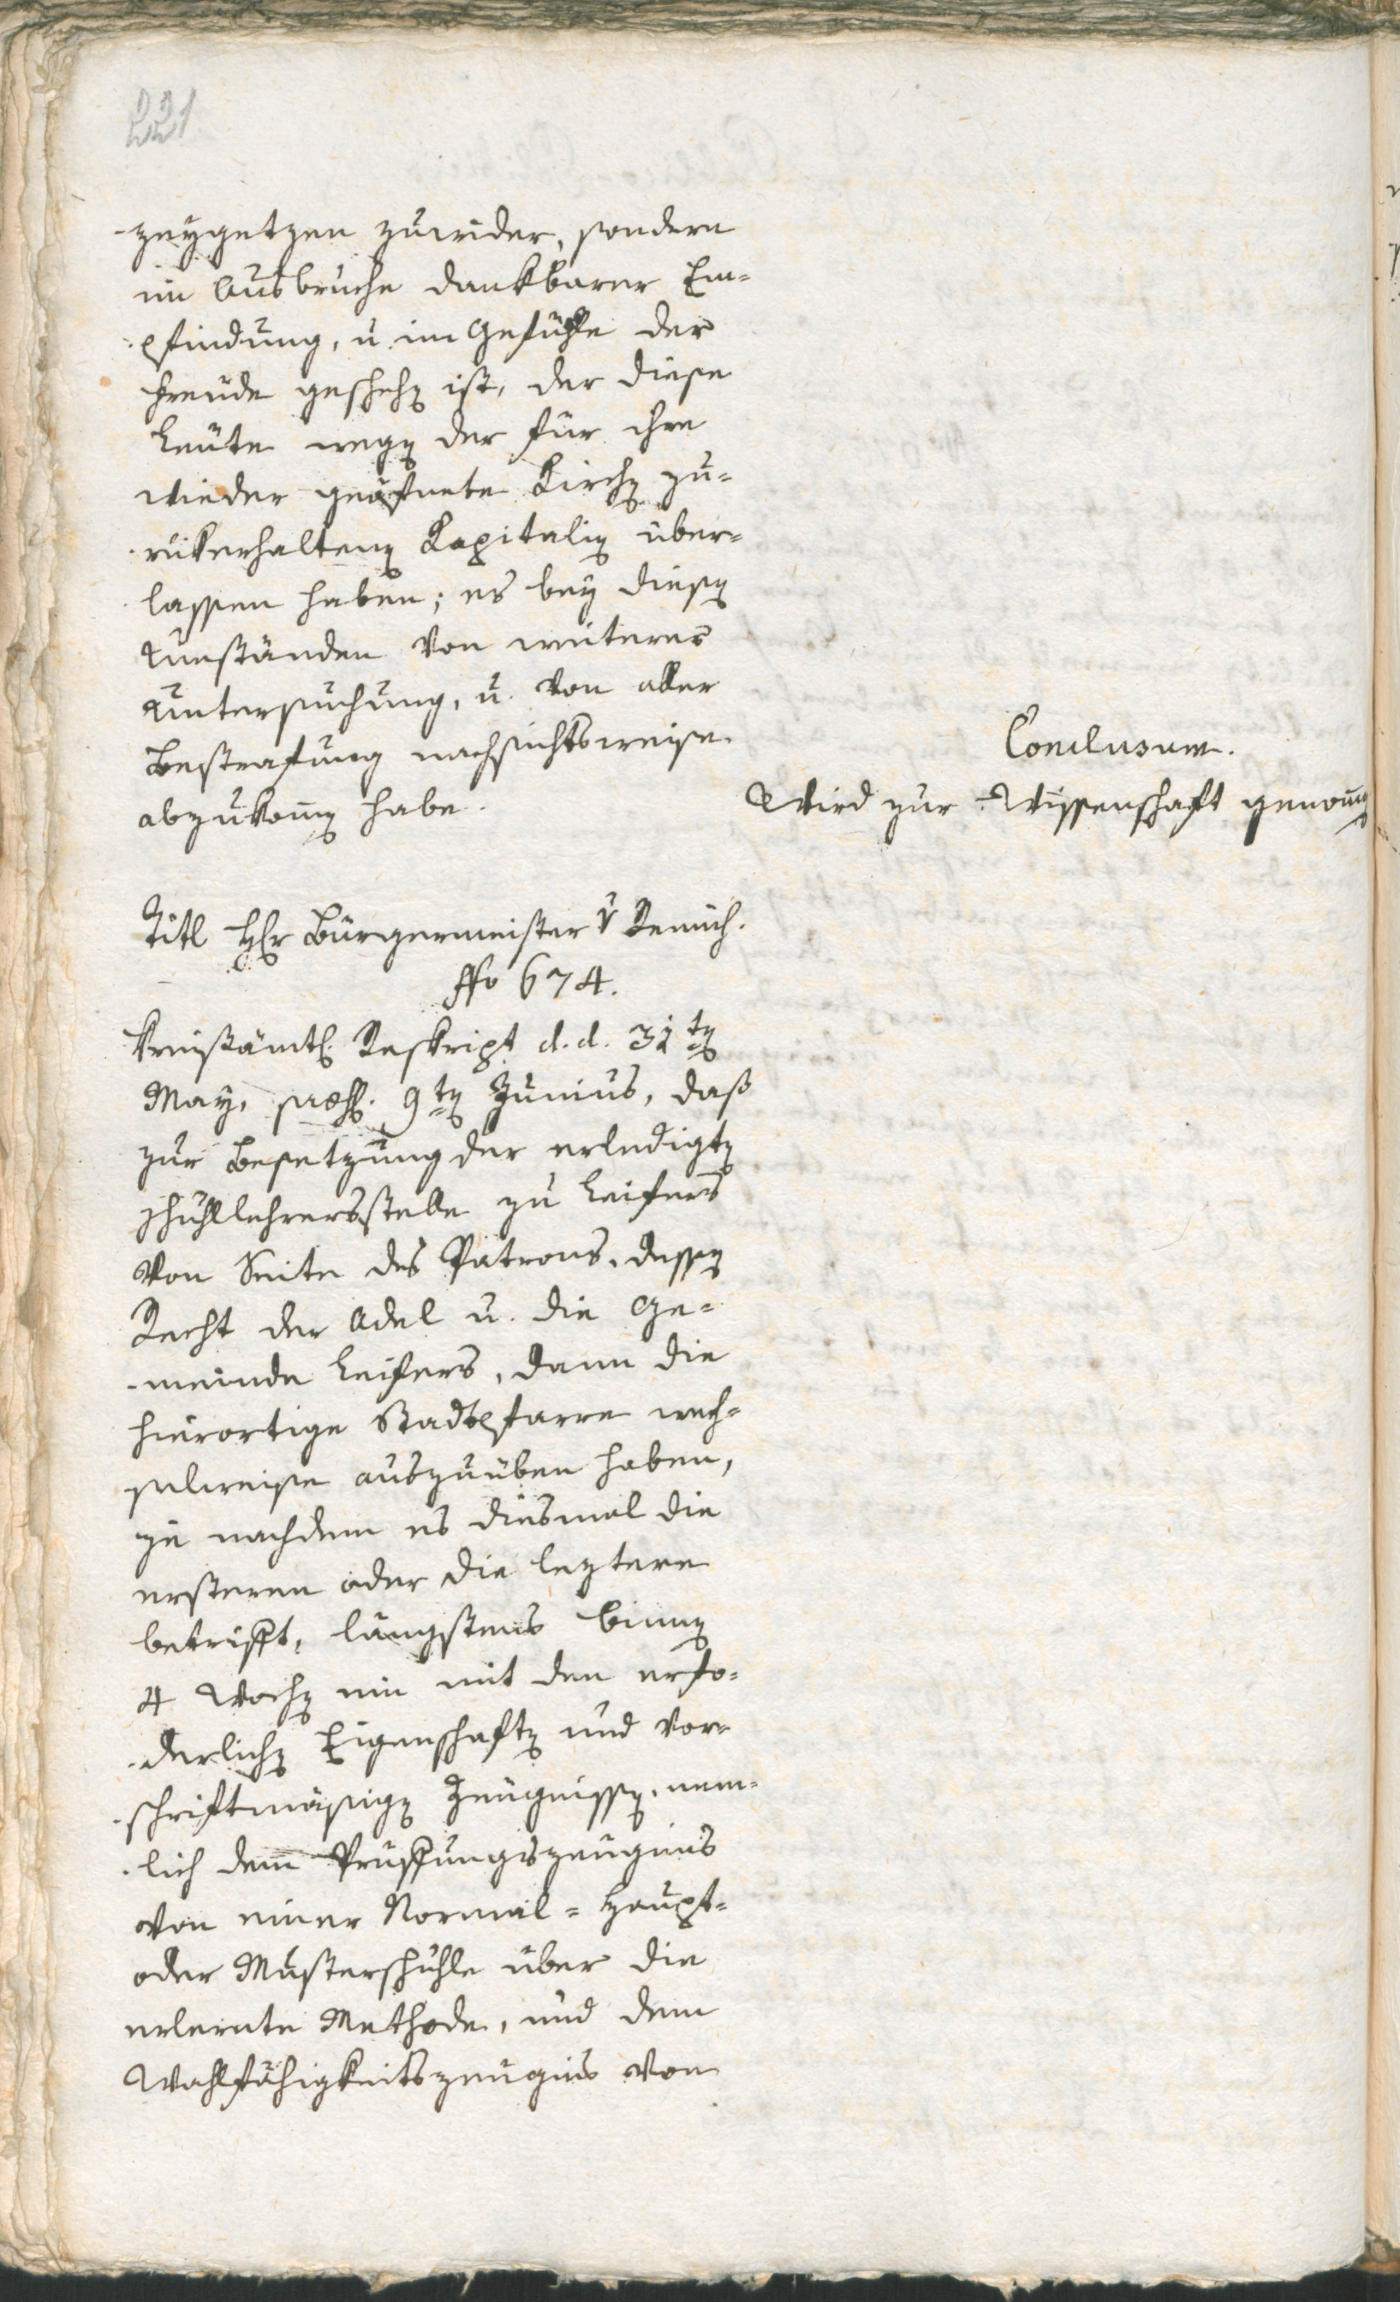 221
-zeygetzen zuwider, sondern
im Ausbruche dankbarer Em=
-pfindung, u. im Gefühle der
Freude geschehen ist, der diese
Leute wegen der für ihre
wieder geöfnete Kirchen zu=
-rükerhaltenen Kapitalien über=
lassen haben; es bey diesen
Umständen von weiterer
Untersuchung, u. von aller
Bestrafung nachsichtsweise
abzukomen habe.
Conclusum.
Wird zur Wissenschaft genomen
Titl Herr Bürgermeister v Remich.
674.
Kreisämtl. Reskript d. d. 31ten
May, præs. 9ten Junius, daß
zur Besetzung der erledigten
Schullehrersstelle zu Leifers
von Seite des Patrons, dessen
Recht der Adel u. die Ge=
-meinde Leifers, dann die
hierortige Stadtpfarre wech=
selweise auszuüben haben,
je nachdem es diesmal die
ersteren oder die leztere
betrifft, längstens binnen
4 Wochen ein mit den erfo=
-derlichen Eigenschaften und vor=
-schriftmäsigen Zeugnissen, nem=
-lich dem Prüffungszeugnis
von einer Normal= Haupt=
oder Musterschuhle über die
erlernte Methode, und dem
Wahlfähigkeitszeugnis von